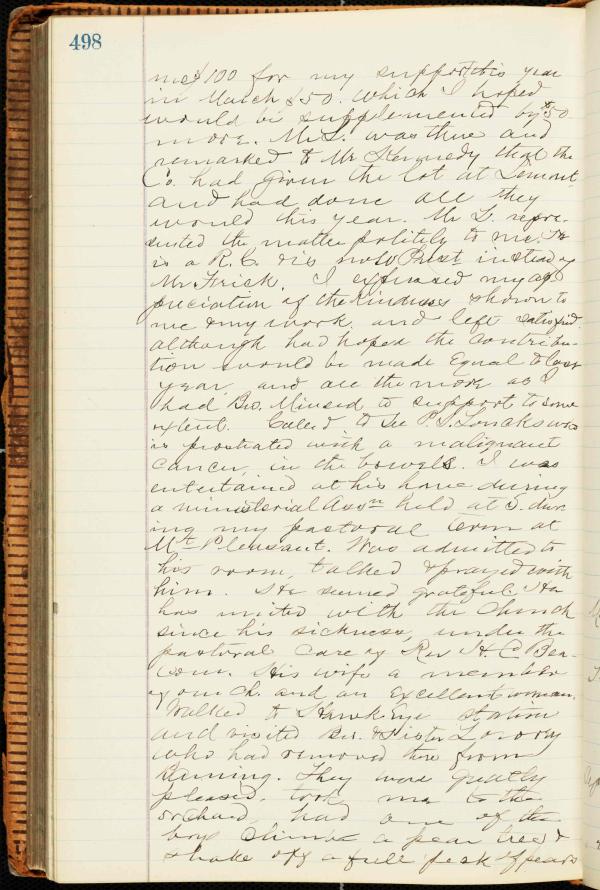 498
me $100 for my support this year
in March $50. which I hoped
would be supplemented by $50
more. Mr L. was there and
remarked to Mr Kennedy that the
Co. had given the lot at Lemont
and had done all they
would this year. Mr L. repre-
sented the matter politely to me. He
is a R. C. & is now Prest instead of
Mr Frick. I expressed my ap
preciation of the kindness shown to
me & my work. and left satisfied.
although had hoped the contribu-
tion would be made equal to last
year, and all the more as I
had Bro. to support to some
extent. Called to see P. S. Loucks who
is prostrated with a malignant
cancer, in the bowels. I was
entertained at his home during
a ministerial Assn held at S. dur
ing my pastoral term at
Mt Pleasant. Was admitted to
his room, talked & prayed with
him. He seemed grateful. He
has united with the Church
since his sickness, under the
pastoral care of Rev H. C. Bea-
com. His wife a member
of our ch. and an excellent woman.
Walked to Hawk Eye station
and visited Bro. & Sister
who had removed there from
. They were greatly
pleased. took me to the
orchard, had one of the
boys climb a pear tree &
shake off a full peck of pears